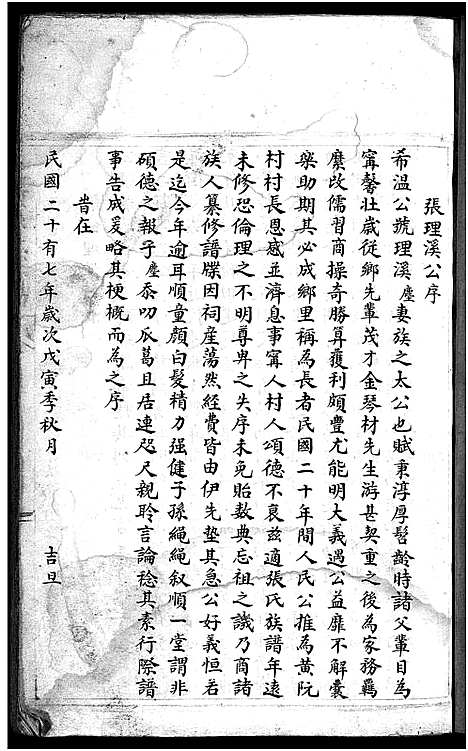 張理溪公序
希溫公號理溪塵妻族之太公也賦秉淳厚髫齡時諸父輩目為
甯馨壯歲從鄉先輩茂才金琴材先生游甚契重之後為家務羈
縻改儒習商操奇勝算獲利頗豐尤能明大義遇公益靡不解囊
樂助期其必成鄉里稱為長者民國二十年間人民公推為黄阮
村村長恩感並濟息事甯人村人頌德不衰兹適張氏族譜年遠
未修恐倫理之不明尊卑之失序未免貽數典忘祖之譏乃商諸
族人纂修譜牒因祠産蕩然經費皆由伊先墊其急公好義恒若
是迄今年逾耳順童顏白髮精力强健子孫繩繩叙順一堂謂非
碩德之報乎塵忝叨瓜葛且居連咫尺親聆言論稔其素行際譜
事告成爰略其梗概而為之序
旹在
民國二十有七年歲次戊寅季秋月 吉旦